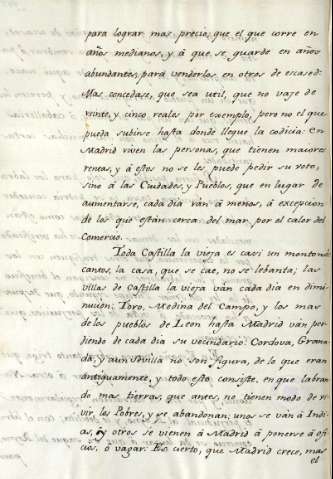 para lograr mas precio, que el que corre en
años medianos, y á que se guarde en años
abundantes, para venderlos en otros de escaséz
Mas concedase, que sea util, que no vaje de
veinte, y cinco reales por exemplo, pero no el que
pueda subirse hasta donde llegue la codicia: En
Madrid viven las personas, que tienen maiores
rentas, y á éstos no se les puede pedir su voto,
sino á las Ciudades, y Pueblos, que en lugar de
aumentarse, cada dia ván á menos, á excepcion
de los que están cerca del mar, por el calor del
Comercio.
Toda Castilla la vieja es casi un monton de
cantos, la casa, que se cae, no se lebanta; las
villas de Castilla la vieja ván cada dia en dimi
nucion; Toro, Medina del Campo, y los mas
de los pueblos de Leon hasta Madrid ván per
diendo de cada dia su vecindario: Cordova, Grana
da, y aun Sevilla no son figura, de lo que eran
antiguamente, y todo esto consiste, en que labra
do mas tierras, que antes, no tienen modo de vi
vir los Pobres, y se abandonan; unos se ván á Indi
as, y otros se vienen á Madrid á ponerse á ofi
cios, ó vagar: Es cierto, que Madrid crece, mas
el